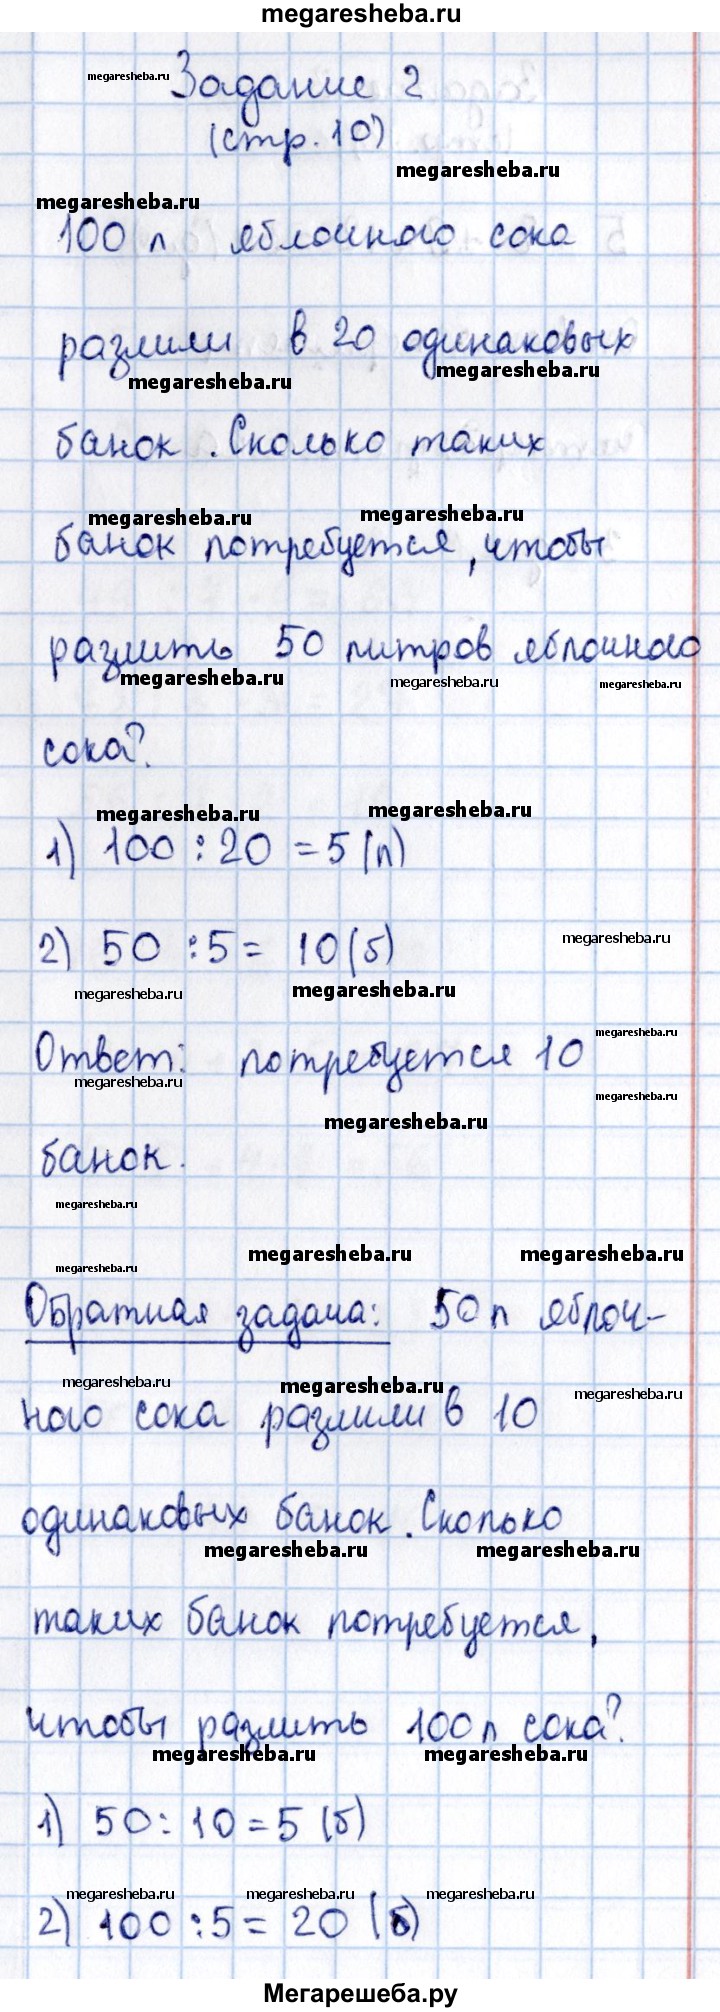 megaresheba.ru
Задание 2
megaresheba.ru
(стр. 10)
megaresheba.ru
megaresheba.ru
100 л яблочного сока
разлили в 20 одинаковых
megaresheba.ru megaresheba.ru
банок. Сколько таких
megaresheba.ru megaresheba.ru
банок потребуется, чтобы
разлить 50 литров яблочного
megaresheba.ru megaresheba.ru megaresheba.ru
сока?
megaresheba.ru megaresheba.ru
1) 100 : 20 = 5 (л)
2) 50 : 5 = 10 (б)
megaresheba.ru
megaresheba.ru megaresheba.ru
Ответ: потребуется 10
megaresheba.ru
megaresheba.ru
megaresheba.ru
megaresheba.ru
банок.
megaresheba.ru
megaresheba.ru megaresheba.ru
megaresheba.ru
Обратная задача: 50 л яблоч-
megaresheba.ru megaresheba.ru megaresheba.ru
ного сока разлили в 10
одинаковых банок. Сколько
megaresheba.ru megaresheba.ru
таких банок потребуется,
чтобы разлить 100 л сока?
megaresheba.ru megaresheba.ru
1) 50 : 10 = 5 (б)
megaresheba.ru megaresheba.ru megaresheba.ru
2) 100 : 5 = 20 (б)
Мегарешеба.ру